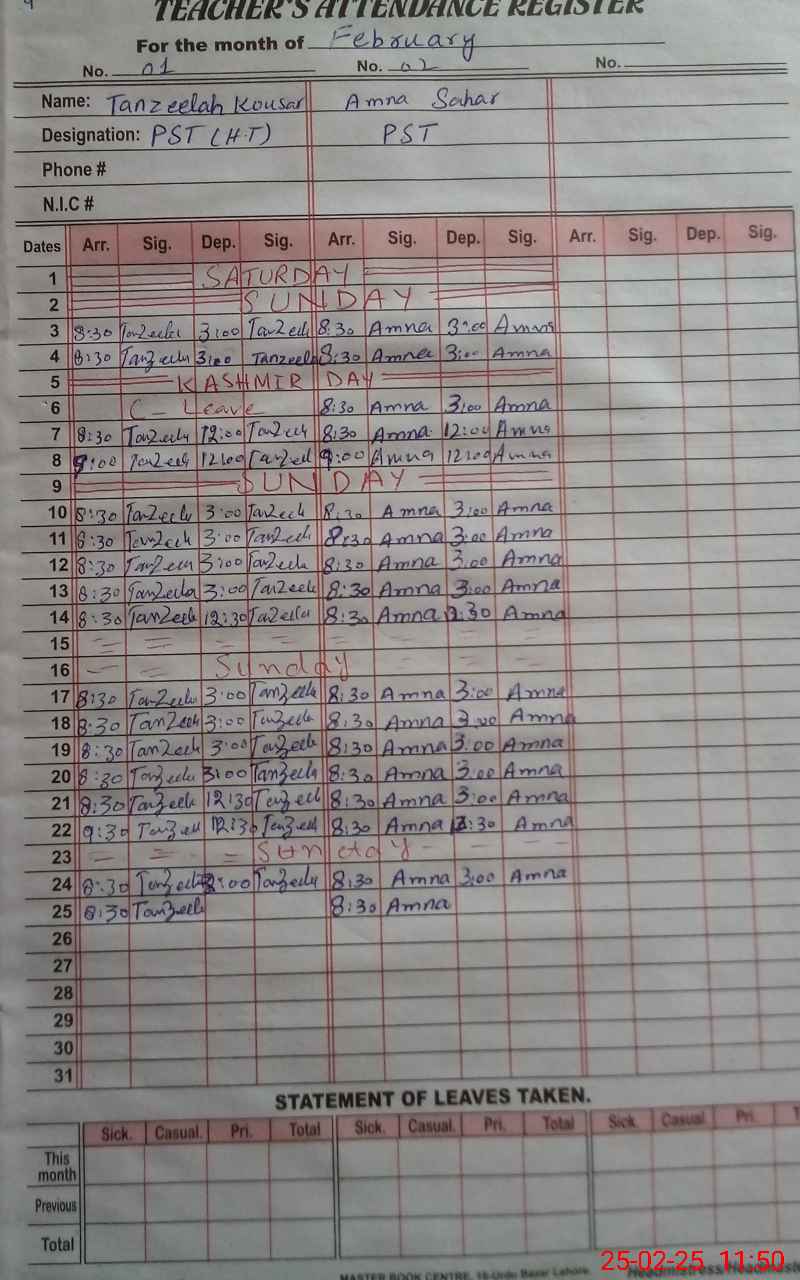 TEACHER'S ATTENDANCE REGISTER
For the month of February
No. 01 No. 02 No.
Name: Tanzeelah Kousar Amna Sahar
Designation: PST (H.T) PST
Phone #
N.I.C #
Dates Arr. Sig. Dep. Sig. Arr. Sig. Dep. Sig. Arr. Sig. Dep. Sig.
1 SATURDAY
2 SUNDAY
3 8:30 Tanzeela 3:00 Tanzeela 8:30 Amna 3:00 Amna
4 8:30 Tanzeela 3:00 Tanzeela 8:30 Amna 3:00 Amna
5 KASHMIR DAY
6 C- Leave 8:30 Amna 3:00 Amna
7 8:30 Tanzeela 12:00 Tanzeela 8:30 Amna 12:00 Amna
8 9:00 Tanzeela 12:00 Tanzeela 9:00 Amna 12:00 Amna
9 SUNDAY
10 8:30 Tanzeela 3:00 Tanzeela 8:30 Amna 3:00 Amna
11 8:30 Tanzeela 3:00 Tanzeela 8:30 Amna 3:00 Amna
12 8:30 Tanzeela 3:00 Tanzeela 8:30 Amna 3:00 Amna
13 8:30 Tanzeela 3:00 Tanzeela 8:30 Amna 3:00 Amna
14 8:30 Tanzeela 12:30 Tanzeela 8:30 Amna 12:30 Amna
15
16 Sunday
17 8:30 Tanzeela 3:00 Tanzeela 8:30 Amna 3:00 Amna
18 8:30 Tanzeela 3:00 Tanzeela 8:30 Amna 3:00 Amna
19 8:30 Tanzeela 3:00 Tanzeela 8:30 Amna 3:00 Amna
20 8:30 Tanzeela 3:00 Tanzeela 8:30 Amna 3:00 Amna
21 8:30 Tanzeela 12:30 Tanzeela 8:30 Amna 3:00 Amna
22 9:30 Tanzeela 12:30 Tanzeela 8:30 Amna 12:30 Amna
23 Sunday
24 8:30 Tanzeela 3:00 Tanzeela 8:30 Amna 3:00 Amna
25 8:30 Tanzeela 8:30 Amna
26
27
28
29
30
31
STATEMENT OF LEAVES TAKEN.
Sick. Casual. Pri. Total Sick. Casual. Pri. Total Sick. Casual Pri. T
This month
Previous
Total
MASTER BOOK CENTRE, 16-Urdu Bazar Lahore.
25-02-25 11:50